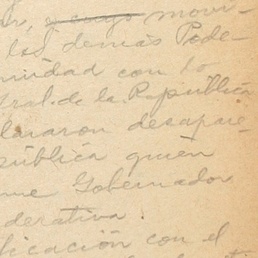 cuyo movi-
los demás Pode-
midad con lo
tral de la República
laron desapare-
pública quien
me Gobernador
derativa.
licación con el